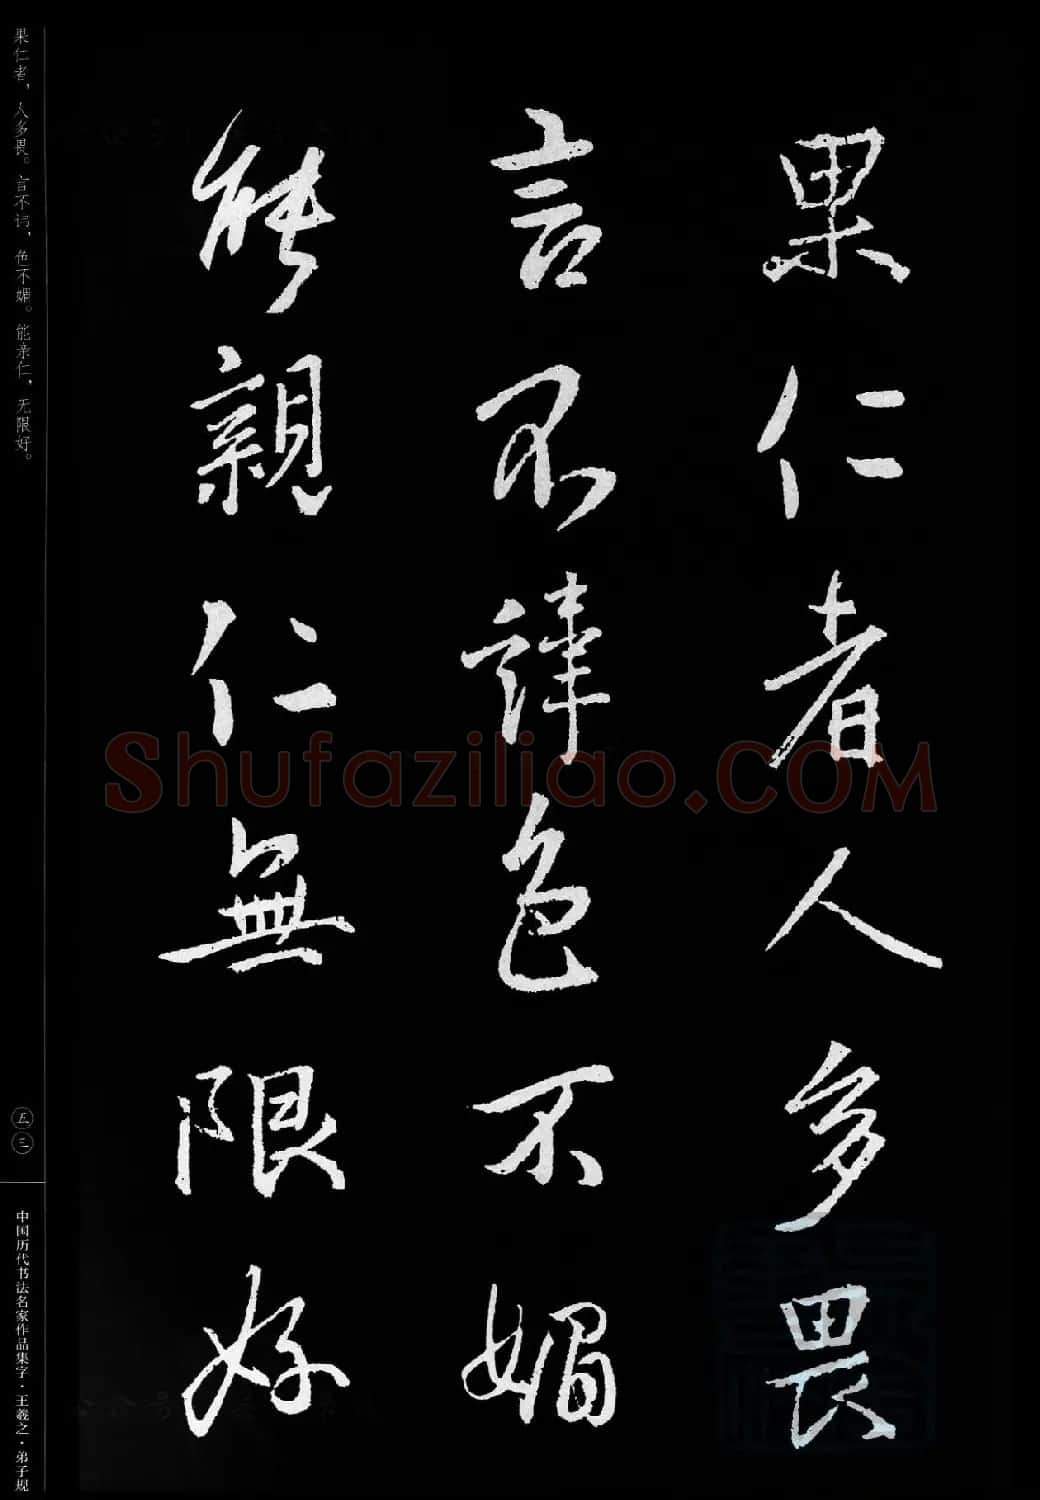 果仁者人多畏
言不諱色不媚
能親仁無限好
果仁者，人多畏。言不讳，色不媚。能亲仁，无限好。
五三
中国历代书法名家作品集字·王羲之·弟子规
Shufaziliao.COM